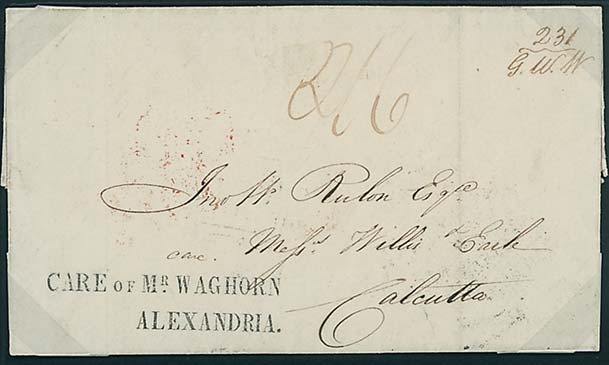 231
G. W. W
2/6
Jno W. Rulon Esqre
care. Messrs Willis & Earle
Calcutta
CARE OF MR WAGHORN
ALEXANDRIA.